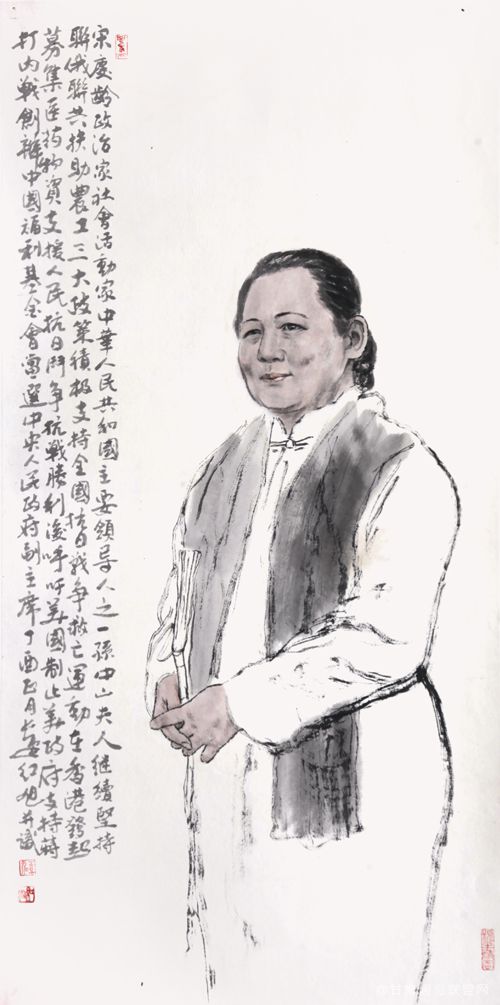 宋慶齡政治家社會活動家中華人民共和國主要領导人之一孫中山夫人继續堅持
聯俄聯共扶助農工三大政策積极支持全國抗日戰争救亡運動在香港發起
募集医药物資支援人民抗日鬥争抗戰勝利後呼吁美國制止美政府支持蔣
打内戰創辦中國福利基金會當選中央人民政府副主席丁酉正月长安红旭并識